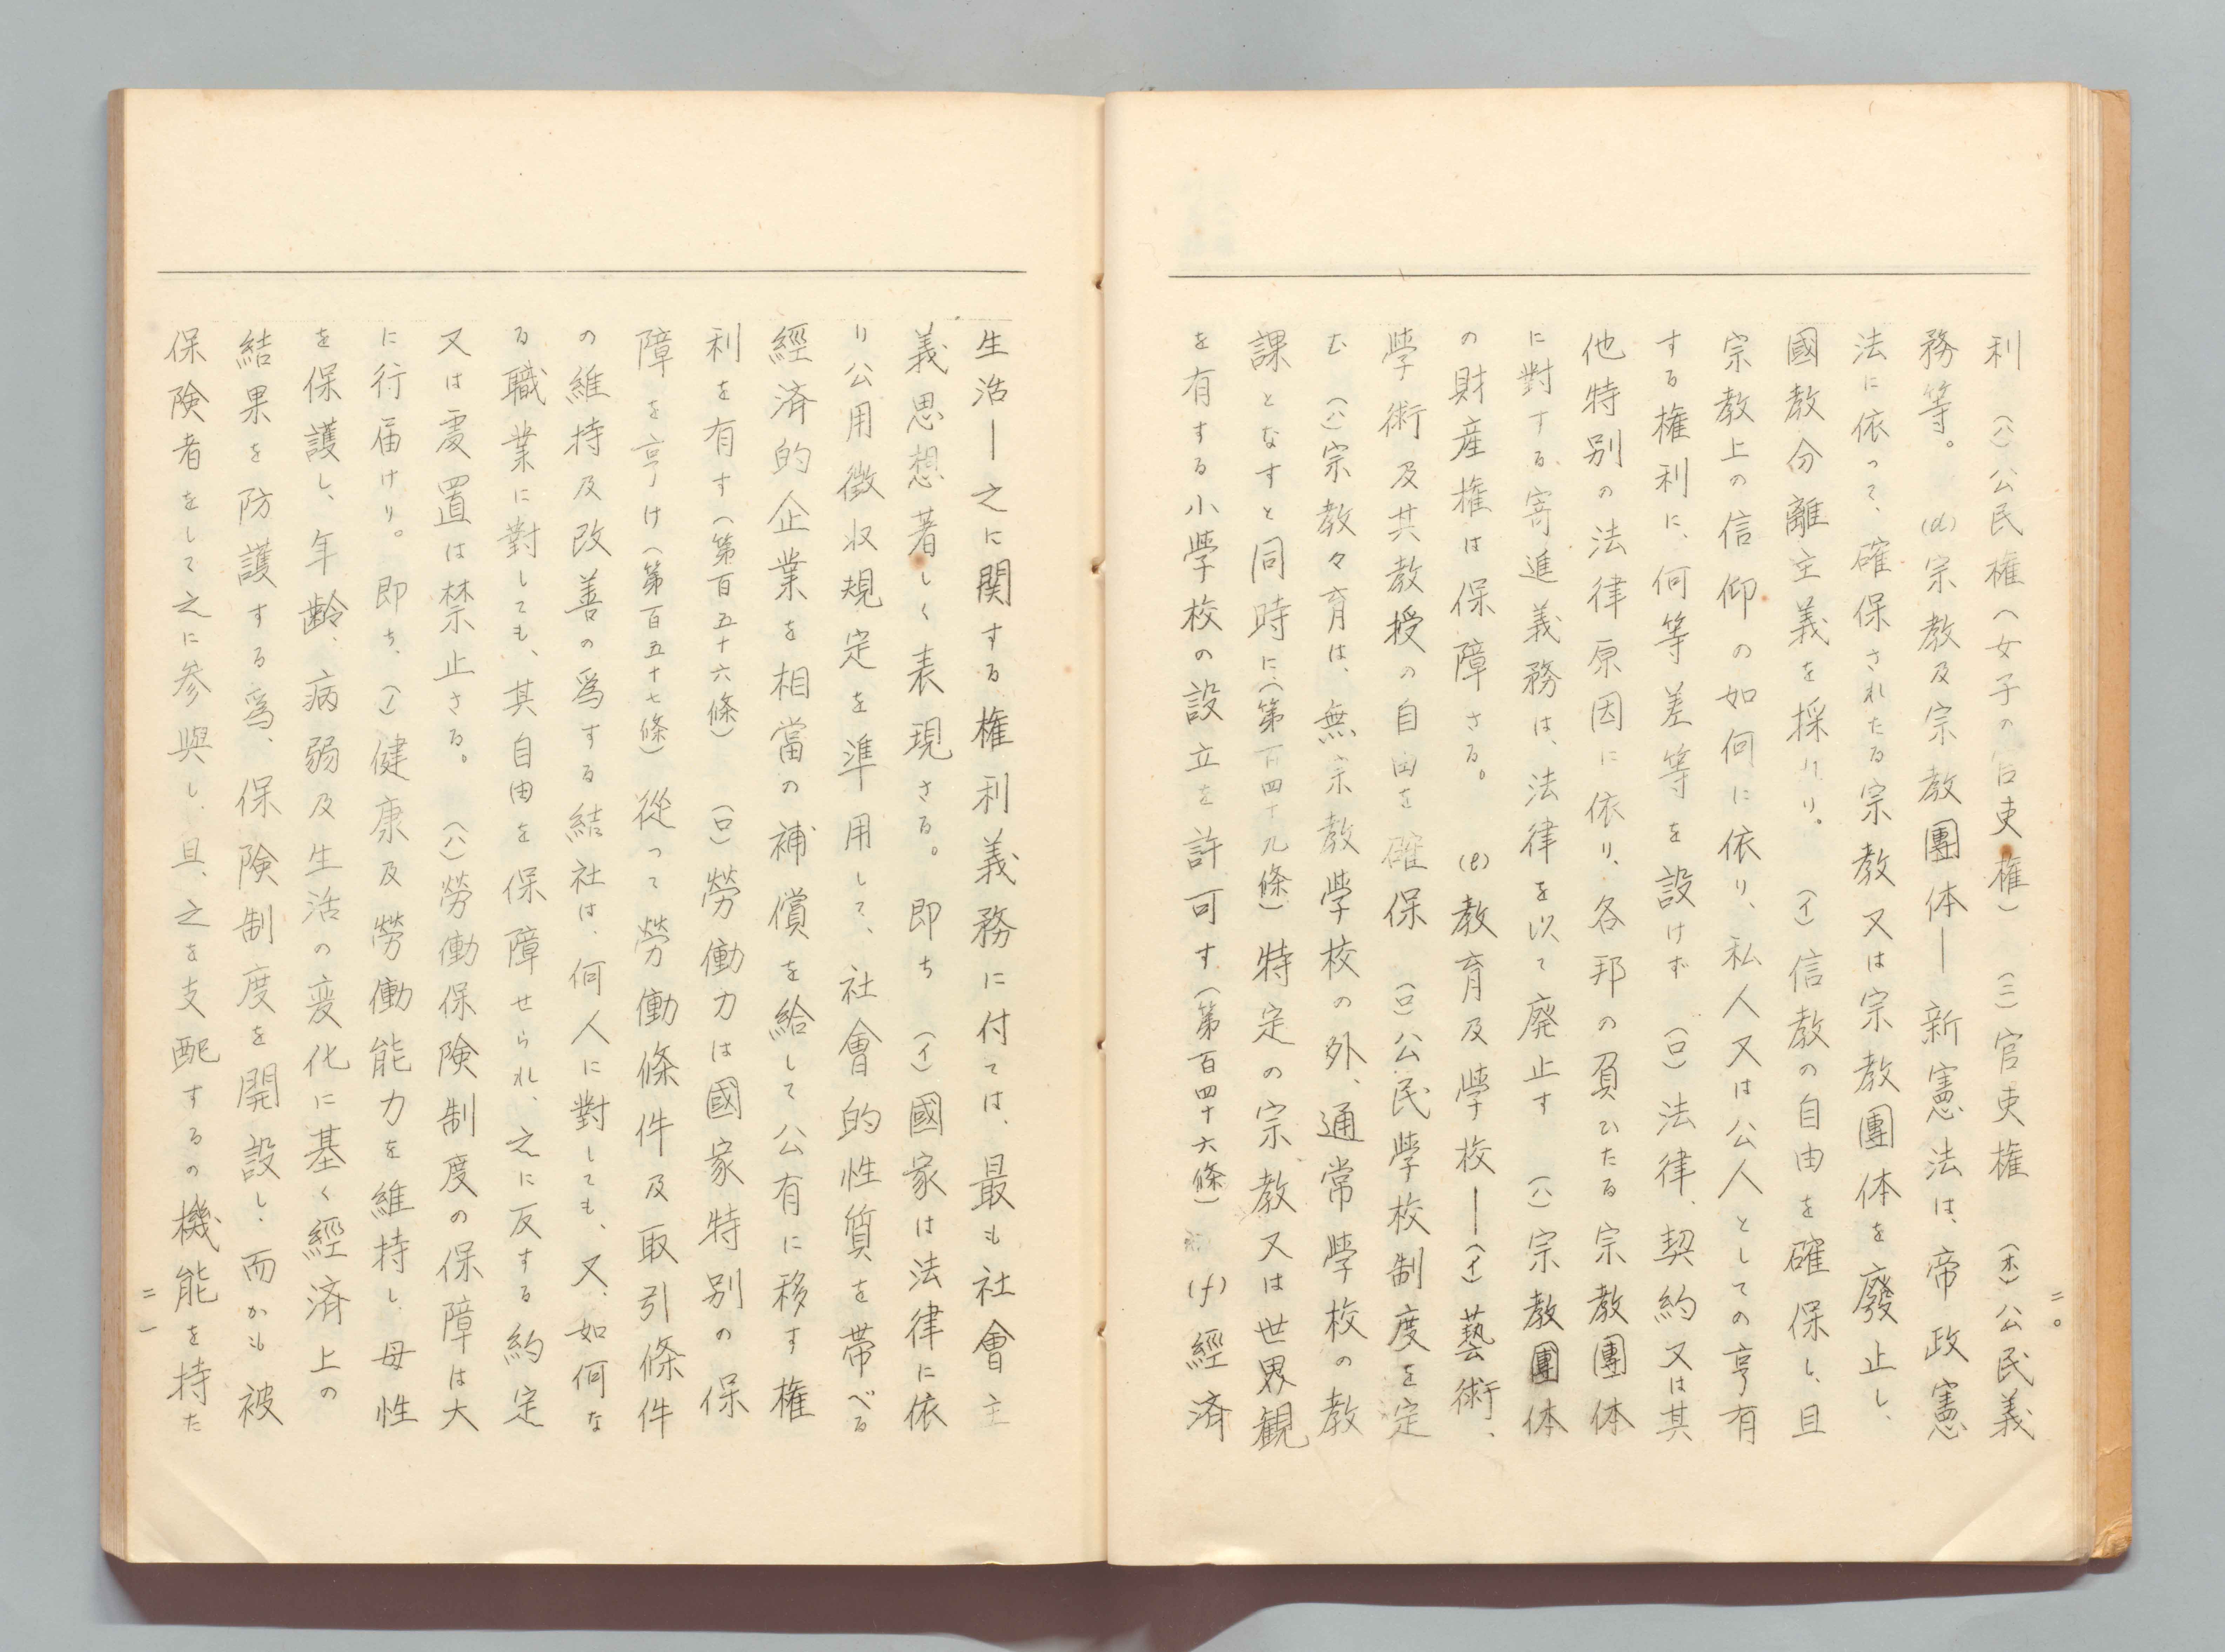 利　(ハ)公民権(女子の官吏権)　(ニ)官吏権　(ホ)公民義
務等。　(d)宗教及宗教團体―　新憲法は、帝政憲
法に依って、確保されたる宗教又は宗教團体を廢止し、
國教分離主義を採れり。　(イ)信教の自由を確保し、且
宗教上の信仰の如何に依り、私人又は公人としての享有
する権利に、何等差等を設けず　(ロ)法律、契約又は其
他特別の法律原因に依り、各邦の負ひたる宗教團体
に對する寄進義務は、法律を以て廃止す　(ハ)宗教團体
の財産権は保障さる。　(e)教育及學校―(イ)藝術、
學術及其教授の自由を確保　(ロ)公民學校制度を定
む　(ハ)宗教々育は、無宗教學校の外、通常學校の教
課となすと同時に(第百四十九條)特定の宗教又は世界観
を有する小學校の設立を許可す(第百四十六條)　(f)經済
二〇
生活―之に関する権利義務に付ては、最も社會主
義思想著しく表現さる。即ち　(イ)國家は法律に依
り公用徴収規定を準用して、社會的性質を帯べる
經済的企業を相當の補償を給して公有に移す権
利を有す(第百五十六條)　(ロ)勞働力は國家特別の保
障を享け(第百五十七條)従って勞働條件及取引條件
の維持及改善の爲する結社は、何人に對しても、又、如何な
る職業に對しても、其自由を保障せられ、之に反する約定
又は處置は禁止さる。　(ハ)勞働保険制度の保障は大
に行届けり。即ち、(イ)健康及勞働能力を維持し、母性
を保護し、年齢、病弱及生活の変化に基く經済上の
結果を防護する爲、保険制度を開設し、而かも被
保険者をして之に参與し、且、之を支配するの機能を持た
二一